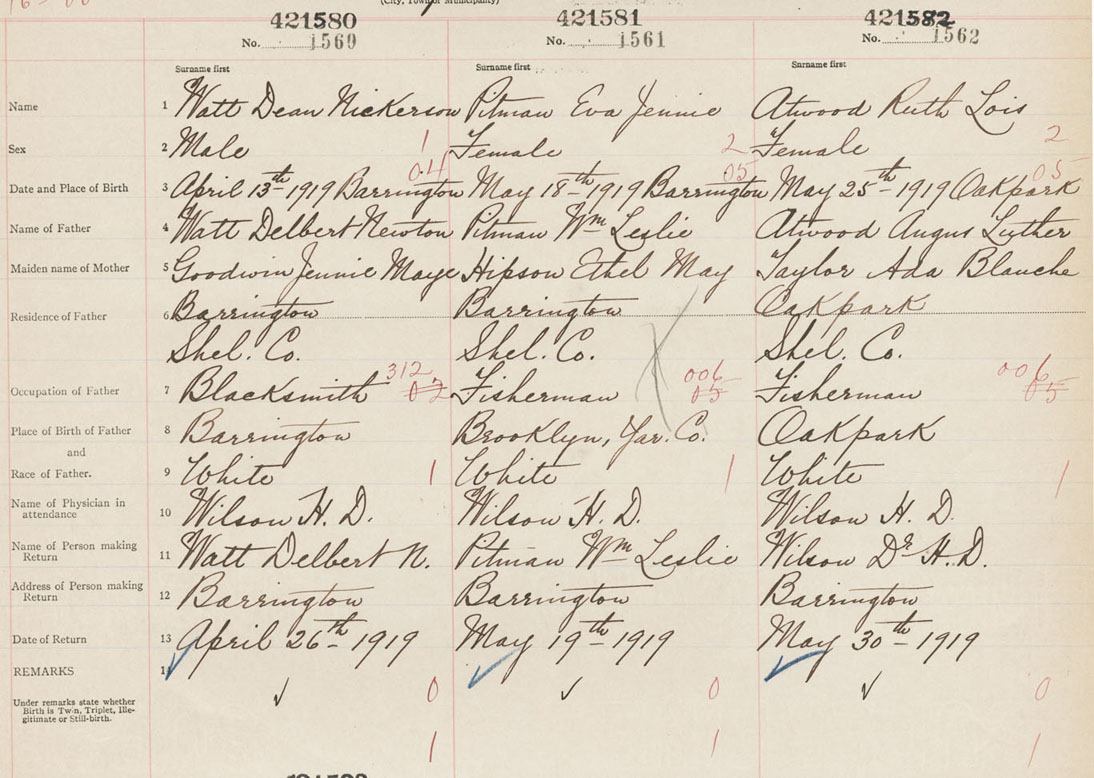 (City, Town or Municipality)
421580 421581 421582
No. 1560 No. 1561 No. 1562
Surname first Surname first Surname first
Name 1 Watt Dean Nickerson Pitman Eva Jennie Atwood Ruth Lois
Sex 2 Male 1 Female 2 Female 2
04 05 05
Date and Place of Birth 3 April 13th 1919 Barrington May 18th 1919 Barrington May 25th 1919 Oakpark
Name of Father 4 Watt Delbert Newton Pitman Wm Leslie Atwood Angus Luther
Maiden name of Mother 5 Goodwin Jennie Maye Hipson Ethel May Taylor Ada Blanche
Residence of Father 6 Barrington Barrington Oakpark
Shel. Co. Shel. Co. Shel. Co.
312 006 006
Occupation of Father 7 Blacksmith 02 Fisherman 05 Fisherman 05
Place of Birth of Father 8 Barrington Brooklyn, Yar. Co. Oakpark
and
Race of Father. 9 White 1 White 1 White 1
Name of Physician in
attendance 10 Wilson H. D. Wilson H. D. Wilson H. D.
Name of Person making
Return 11 Watt Delbert N. Pitman Wm Leslie Wilson Dr H. D.
Address of Person making
Return 12 Barrington Barrington Barrington
Date of Return 13 April 26th 1919 May 19th 1919 May 30th 1919
REMARKS 14
Under remarks state whether
Birth is Twin, Triplet, Ille-
gitimate or Still-birth.
0 0 0
1 1 1